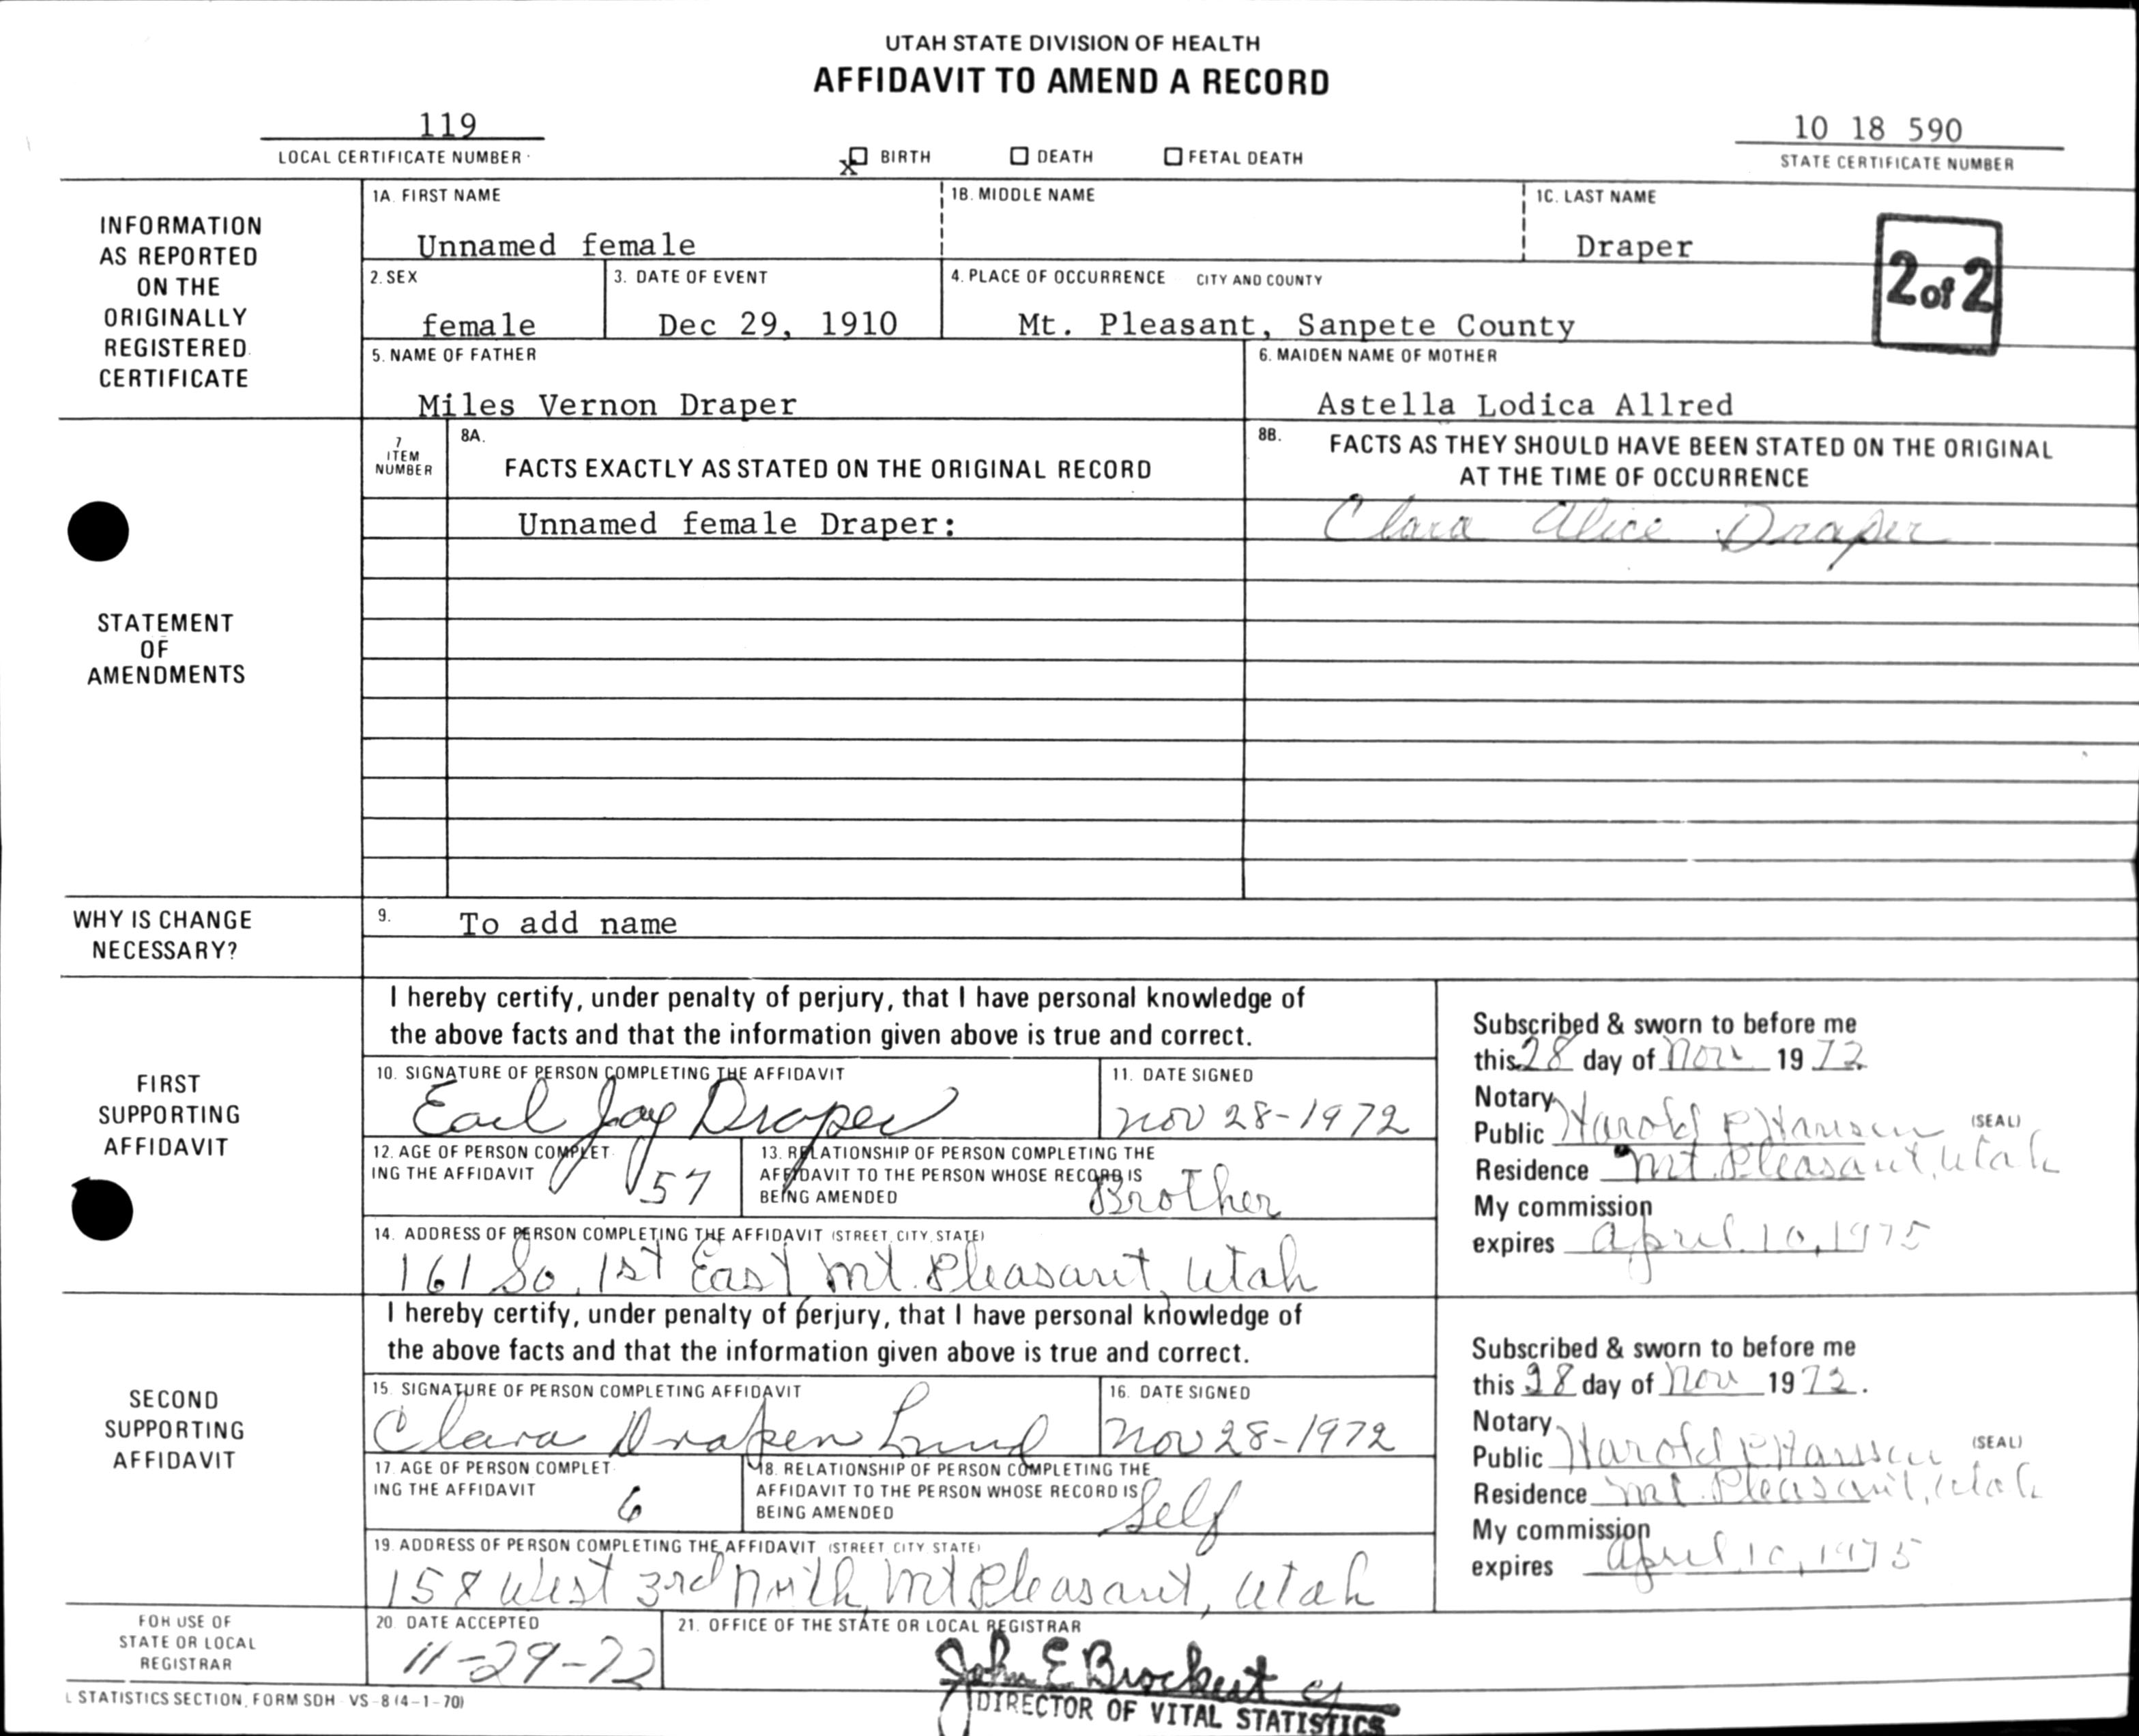 UTAH STATE DIVISION OF HEALTH
AFFIDAVIT TO AMEND A RECORD
119
LOCAL CERTIFICATE NUMBER
x BIRTH DEATH FETAL DEATH
10 18 590
STATE CERTIFICATE NUMBER
INFORMATION
AS REPORTED
ON THE
ORIGINALLY
REGISTERED
CERTIFICATE
1A. FIRST NAME 1B. MIDDLE NAME 1C. LAST NAME
Unnamed female Draper
2 of 2
2. SEX 3. DATE OF EVENT 4. PLACE OF OCCURRENCE CITY AND COUNTY
female Dec 29, 1910 Mt. Pleasant, Sanpete County
5. NAME OF FATHER 6. MAIDEN NAME OF MOTHER
Miles Vernon Draper Astella Lodica Allred
STATEMENT
OF
AMENDMENTS
7
ITEM
NUMBER
8A.
FACTS EXACTLY AS STATED ON THE ORIGINAL RECORD
8B. FACTS AS THEY SHOULD HAVE BEEN STATED ON THE ORIGINAL
AT THE TIME OF OCCURRENCE
Unnamed female Draper: Clara Alice Draper
WHY IS CHANGE
NECESSARY?
9. To add name
FIRST
SUPPORTING
AFFIDAVIT
I hereby certify, under penalty of perjury, that I have personal knowledge of
the above facts and that the information given above is true and correct.
10. SIGNATURE OF PERSON COMPLETING THE AFFIDAVIT 11. DATE SIGNED
Earl Jay Draper Nov 28-1972
12. AGE OF PERSON COMPLET-
ING THE AFFIDAVIT 57
13. RELATIONSHIP OF PERSON COMPLETING THE
AFFIDAVIT TO THE PERSON WHOSE RECORD IS
BEING AMENDED Brother
14. ADDRESS OF PERSON COMPLETING THE AFFIDAVIT (STREET, CITY, STATE)
161 So. 1st East Mt. Pleasant, Utah
Subscribed & sworn to before me
this 28 day of Nov 1972
Notary
Public Harold P. Hansen (SEAL)
Residence Mt. Pleasant, Utah
My commission
expires April 10, 1975
SECOND
SUPPORTING
AFFIDAVIT
I hereby certify, under penalty of perjury, that I have personal knowledge of
the above facts and that the information given above is true and correct.
15. SIGNATURE OF PERSON COMPLETING AFFIDAVIT 16. DATE SIGNED
Clara Draper Lund Nov 28-1972
17. AGE OF PERSON COMPLET-
ING THE AFFIDAVIT 6
18. RELATIONSHIP OF PERSON COMPLETING THE
AFFIDAVIT TO THE PERSON WHOSE RECORD IS
BEING AMENDED Self
19. ADDRESS OF PERSON COMPLETING THE AFFIDAVIT (STREET CITY STATE)
158 West 3rd North, Mt Pleasant, Utah
Subscribed & sworn to before me
this 28 day of Nov 1972.
Notary
Public Harold P. Hansen (SEAL)
Residence Mt. Pleasant, Utah
My commission
expires April 10, 1975
FOR USE OF
STATE OR LOCAL
REGISTRAR
20. DATE ACCEPTED
11-29-72
21. OFFICE OF THE STATE OR LOCAL REGISTRAR
John E Brockert
DIRECTOR OF VITAL STATISTICS
L STATISTICS SECTION, FORM SDH - VS - 8 (4-1-70)